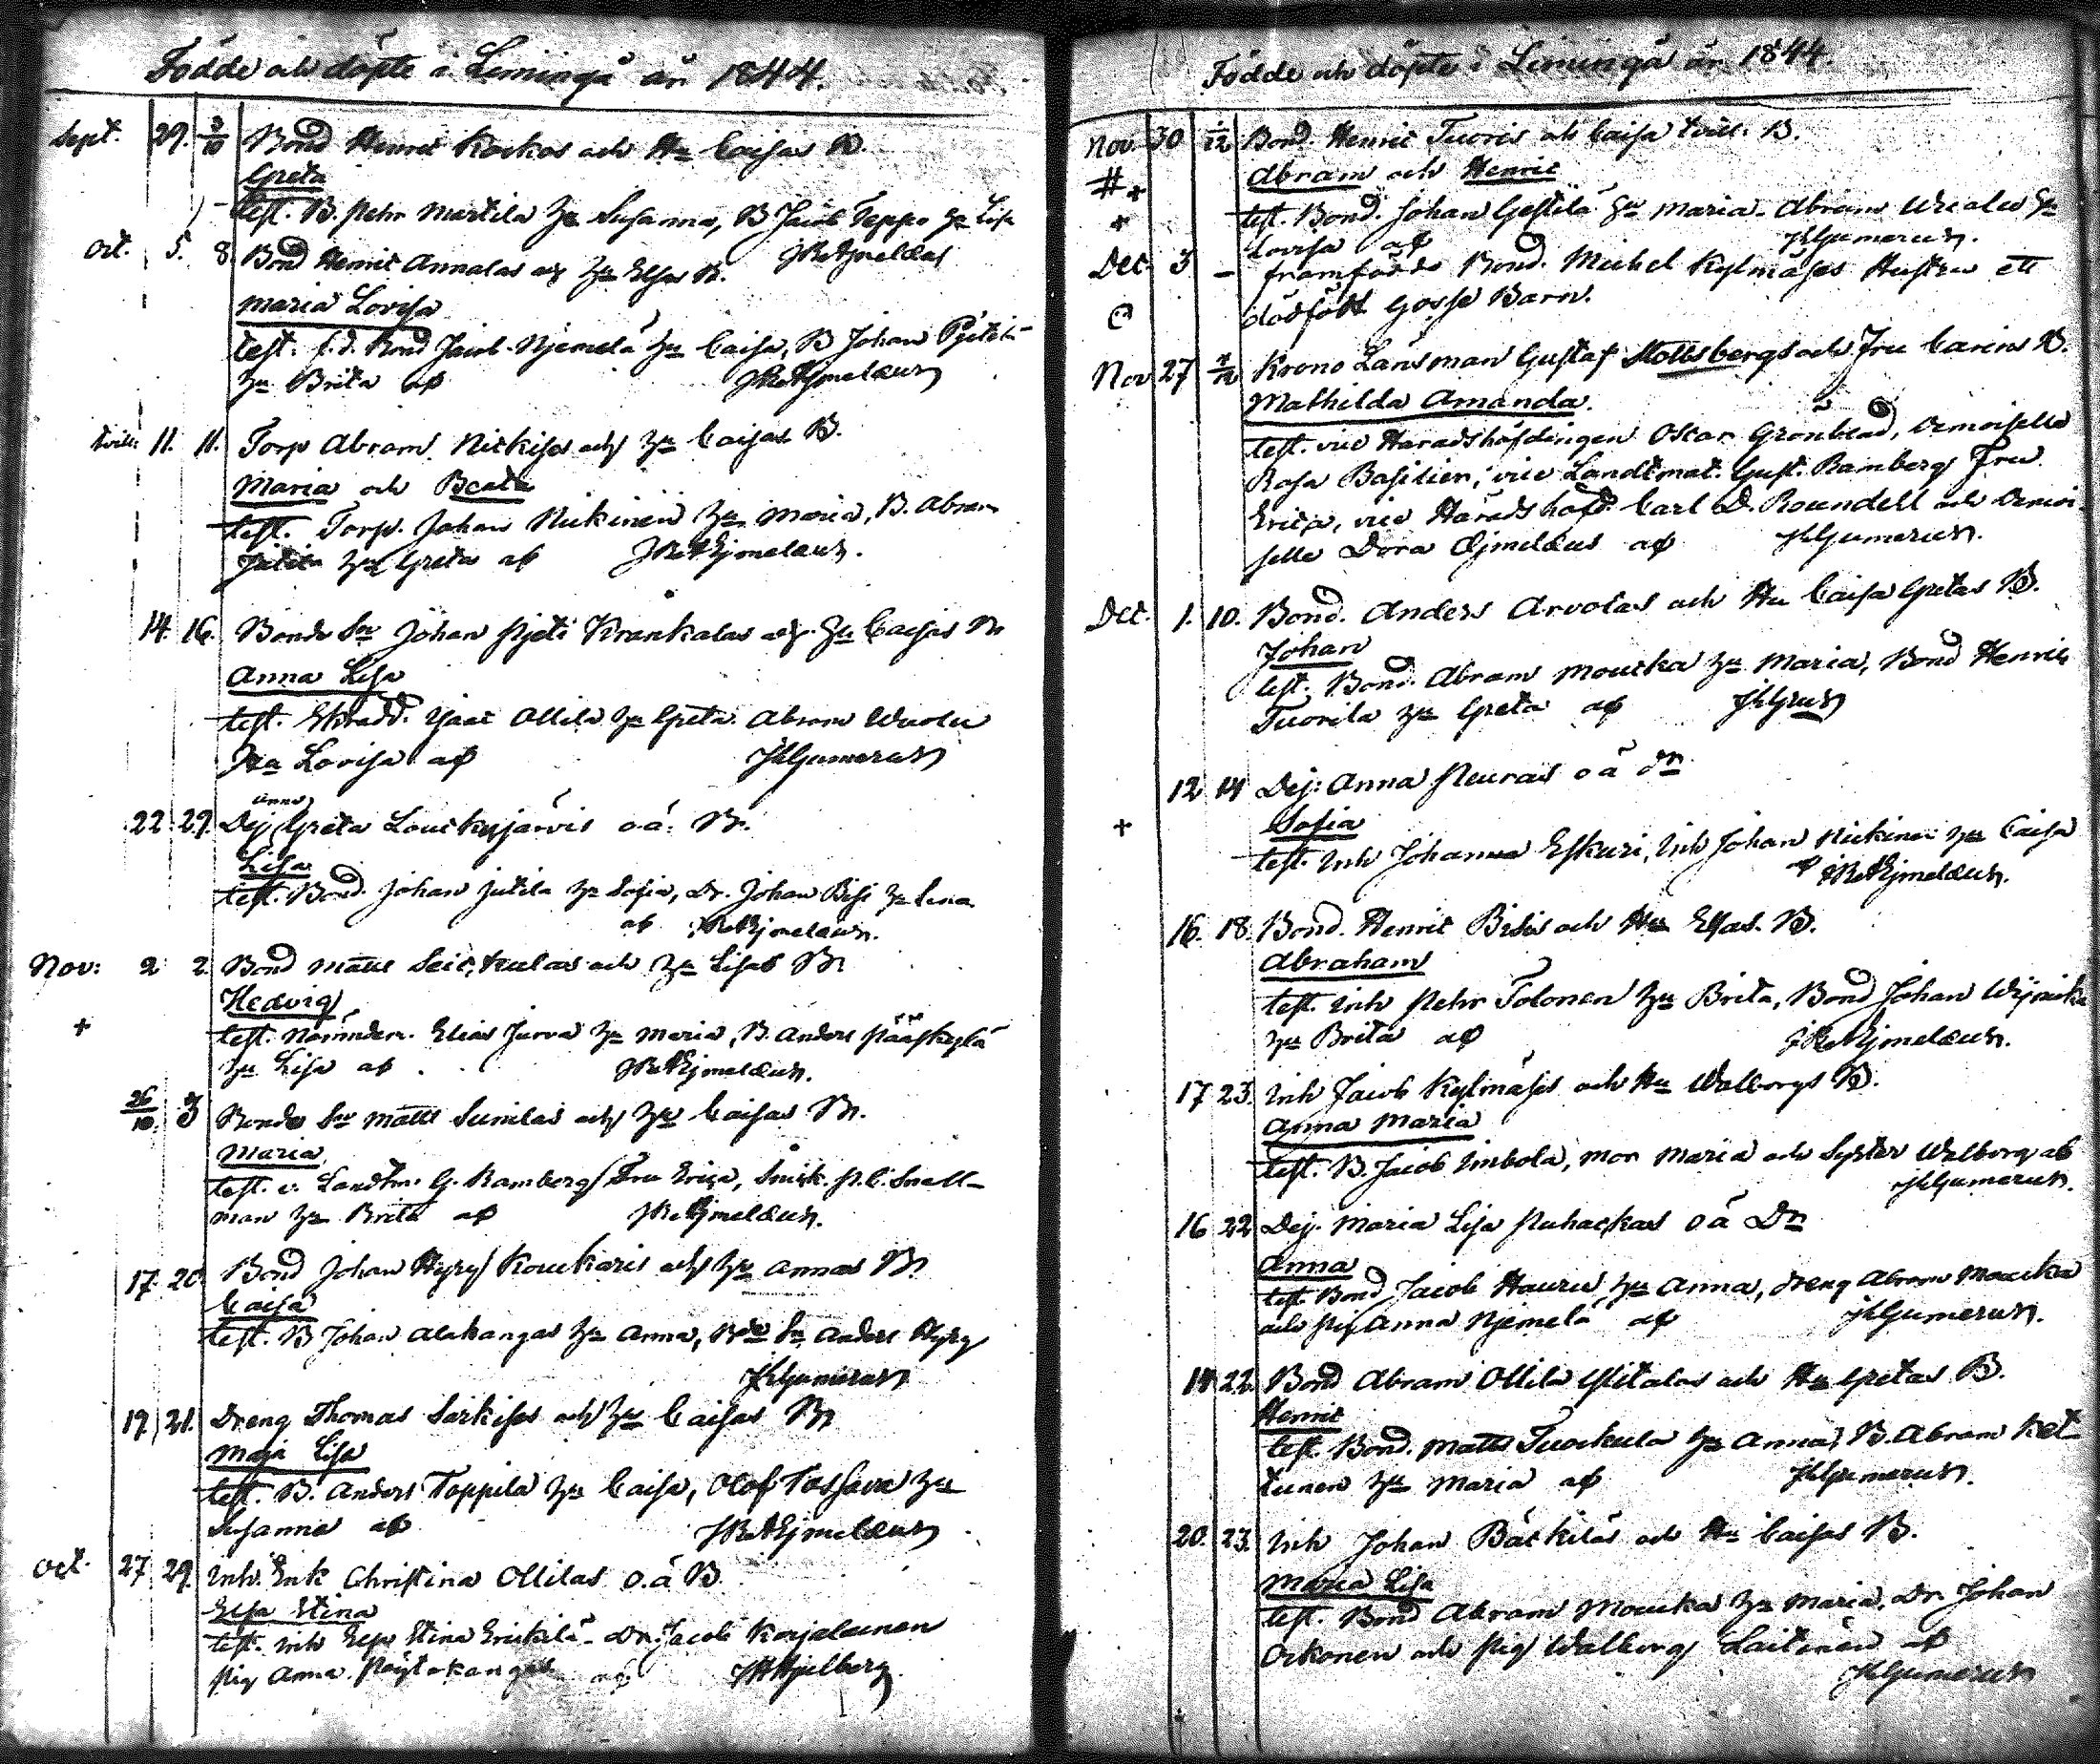 Födde och döpte i Limingå år 1844.
Sept. 29. 3/10 Bond Henric Kockos och Hu Caisas B.
Greta
test. B. Pehr Martila hu Susanna, B Jacob Teppo hu Lisa
Oct. 5. 8. Bond Henric Annalas och hu Elsas B.
Maria Lovisa
test. f.d. Bond Jacob Njemelä hu Caisa, B Johan
hu Brita af
tvill: 11. 11. Torp Abram Nickises och hu Caisas B.
Maria och Beata
test. Torp. Johan Nickinen hu Maria, B. Abram
Jutila hu Greta af
14. 16. Bonde Sn Johan Pjeti Krankalas och hu Caisas Bn
Anna Lisa
test. Isaac Ollila hu Greta. Abram Wuolu
Hu Lovisa af JKGumerus
22. 29. Dej Anna Greta Louckojärvis o.ä. Bn.
Lisa
test. Bond. Johan Jutila hu Sofia, Dr. Johan Bisi hu Lena
af
Nov: 2 2. Bond Matts och hu Lisas Bn
Hedvig
+ test. Nämndem. Elias Jurva hu Maria, B. Anders Pääskylä
hu Lisa af
26/10. 3 Bonde Sn Matts Sunilas och hu Caisas Bn.
Maria
test. v. Landtm. G. Ramberg Fru Erica, P.C. Snell-
man hu Brita af
17. 20. Bond Johan Hyry Kouckaris och hu Annas Bn
Caisa
test. B Johan Alakangas hu Anna, Bde Sn Anders Hyry
JKGumerus
19. 21. Dreng Thomas Sarkises och hu Caisas Bn
Maja Lisa
test. B. Anders Toppila hu Caisa, Olof Tossava hu
Susanna af
Oct. 27 29. Inh. Enk Christina Ollilas o.ä B.
Elsa Stina
test. Inh Elsa Stina Erickilä Dr. Jacob Karjalainen
Pig Anna af
Födde och döpte i Limingå år 1844.
Nov. 30 1/12 Bond. Henric Tuoris och Caisa tvill. B.
# + Abram och Henric
+ test. Bond. Johan Gestilä hu Maria. Abram hu
Lovisa af JKGumerus.
Dec. 3 – framfödde Bond. Michel Kylmäses Hustru ett
dödfött Gosse Barn.
Nov 27 Krono Länsman Gustaf Stoltsbergs och Fru Carins B.
Mathilda Amanda.
test. vice Häradshöfdingen Oscar Grönblad, Demoiselle
Rosa Basilier, vice Landtmät. Gust. Ramberg Fru
Erica, vice Häradshöfd. Carl D. Roundell och Demoi-
selle Dora Ejmelæus af JKGumerus.
Dec. 1. 10. Bond. Anders Arvolas och Hu Caisa Gretas B.
Johan
test. Bond. Abram Moucka hu Maria, Bond Henric
Tuorila hu Greta af JKGrus
12. 14 Dej: Anna Neuras o ä Dn
Sofia
+ test. Inh Johanna Eskuri, Inh Johan Nickinen hu Caisa
af
16. 18. Bond. Henric Bisis och Hu Elsas. B.
Abraham
test. Inh Pehr Tolonen hu Brita, Bond Johan
hu Brita af
17 23. Inh Jacob Kylmäses och Hu Walborgs B.
Anna Maria
test. B. JacobImbola, mor Maria och Syster Walborg af
JKGumerus.
16 22 Dej. Maria Lisa Puhackas o ä Dn
Anna
test. Bond Jacob Hauru hu Anna, Dreng Abram Moucka
och Pig Anna Njemelä af JKGumerus.
14 22. Bond Abram Ollila Ylitalos och Hu Gretas B.
Henric
test. Bond. Matts Tuockula hu Anna, B. Abram Ket-
tunen hu Maria af JKGumerus.
20. 23. Inh Johan Bäckiläs och Hu Caisas B.
Maria Lisa
test. Bond Abram Moucka hu Maria, Dr. Johan
Orkonen och Pig Walborg Laitinen af
JKGumerus